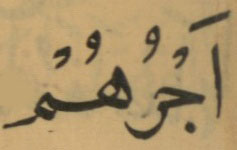 اَجْرُهُمْ